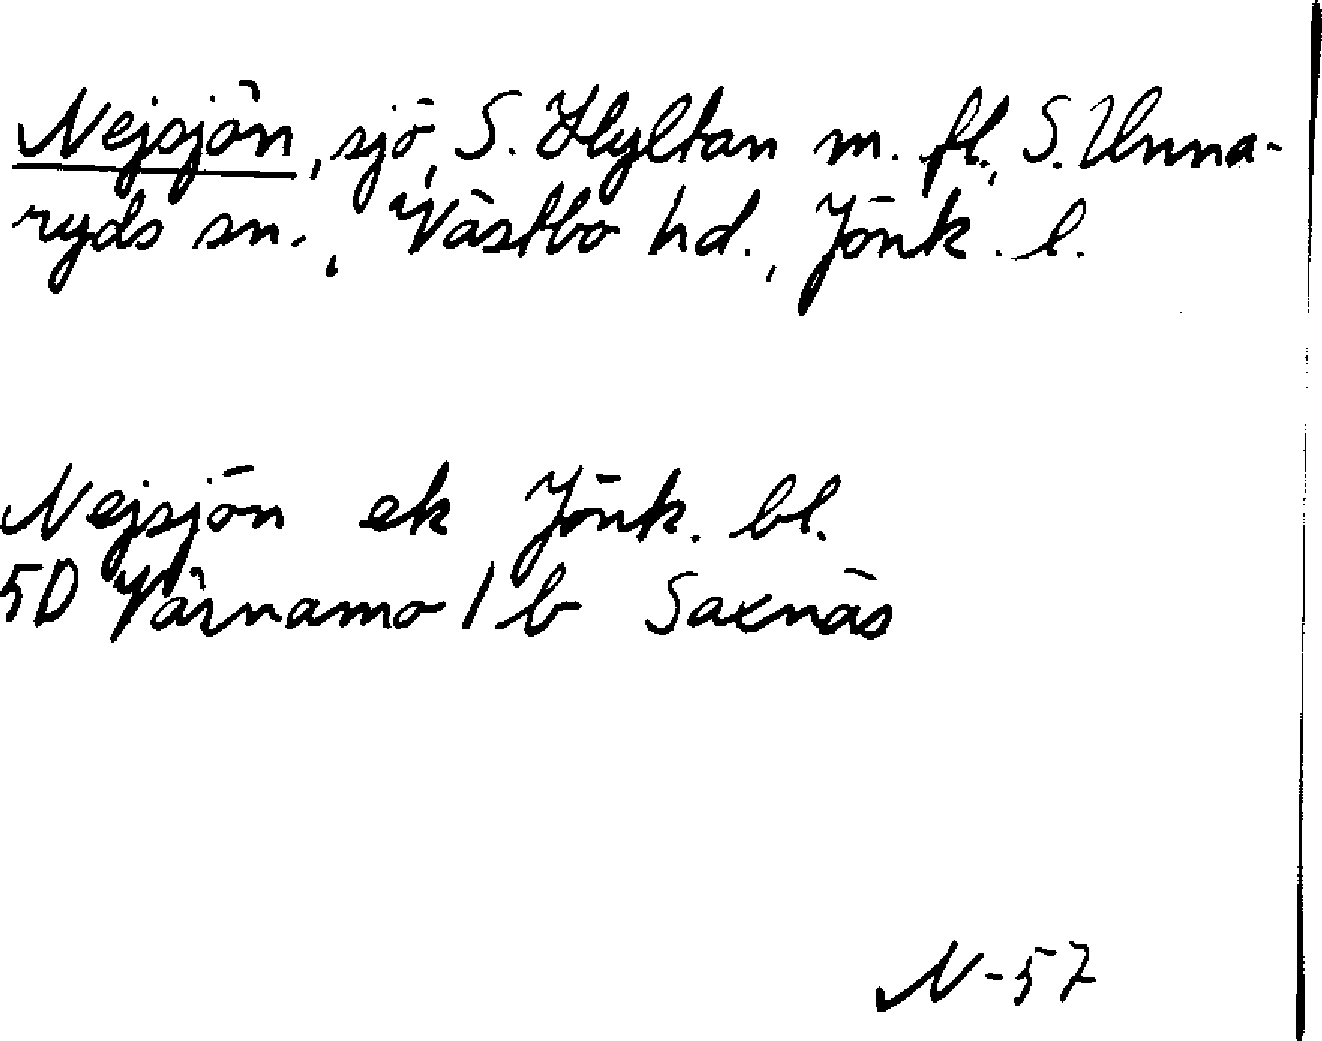 Nejsjön, sjö, S. Hyltan m. fl., S. Unna-
ryds sn., Västbo hd., Jönk. l.
Nejsjön ek Jönk. bl.
5D Värnamo 1 b Saxnäs
N-57